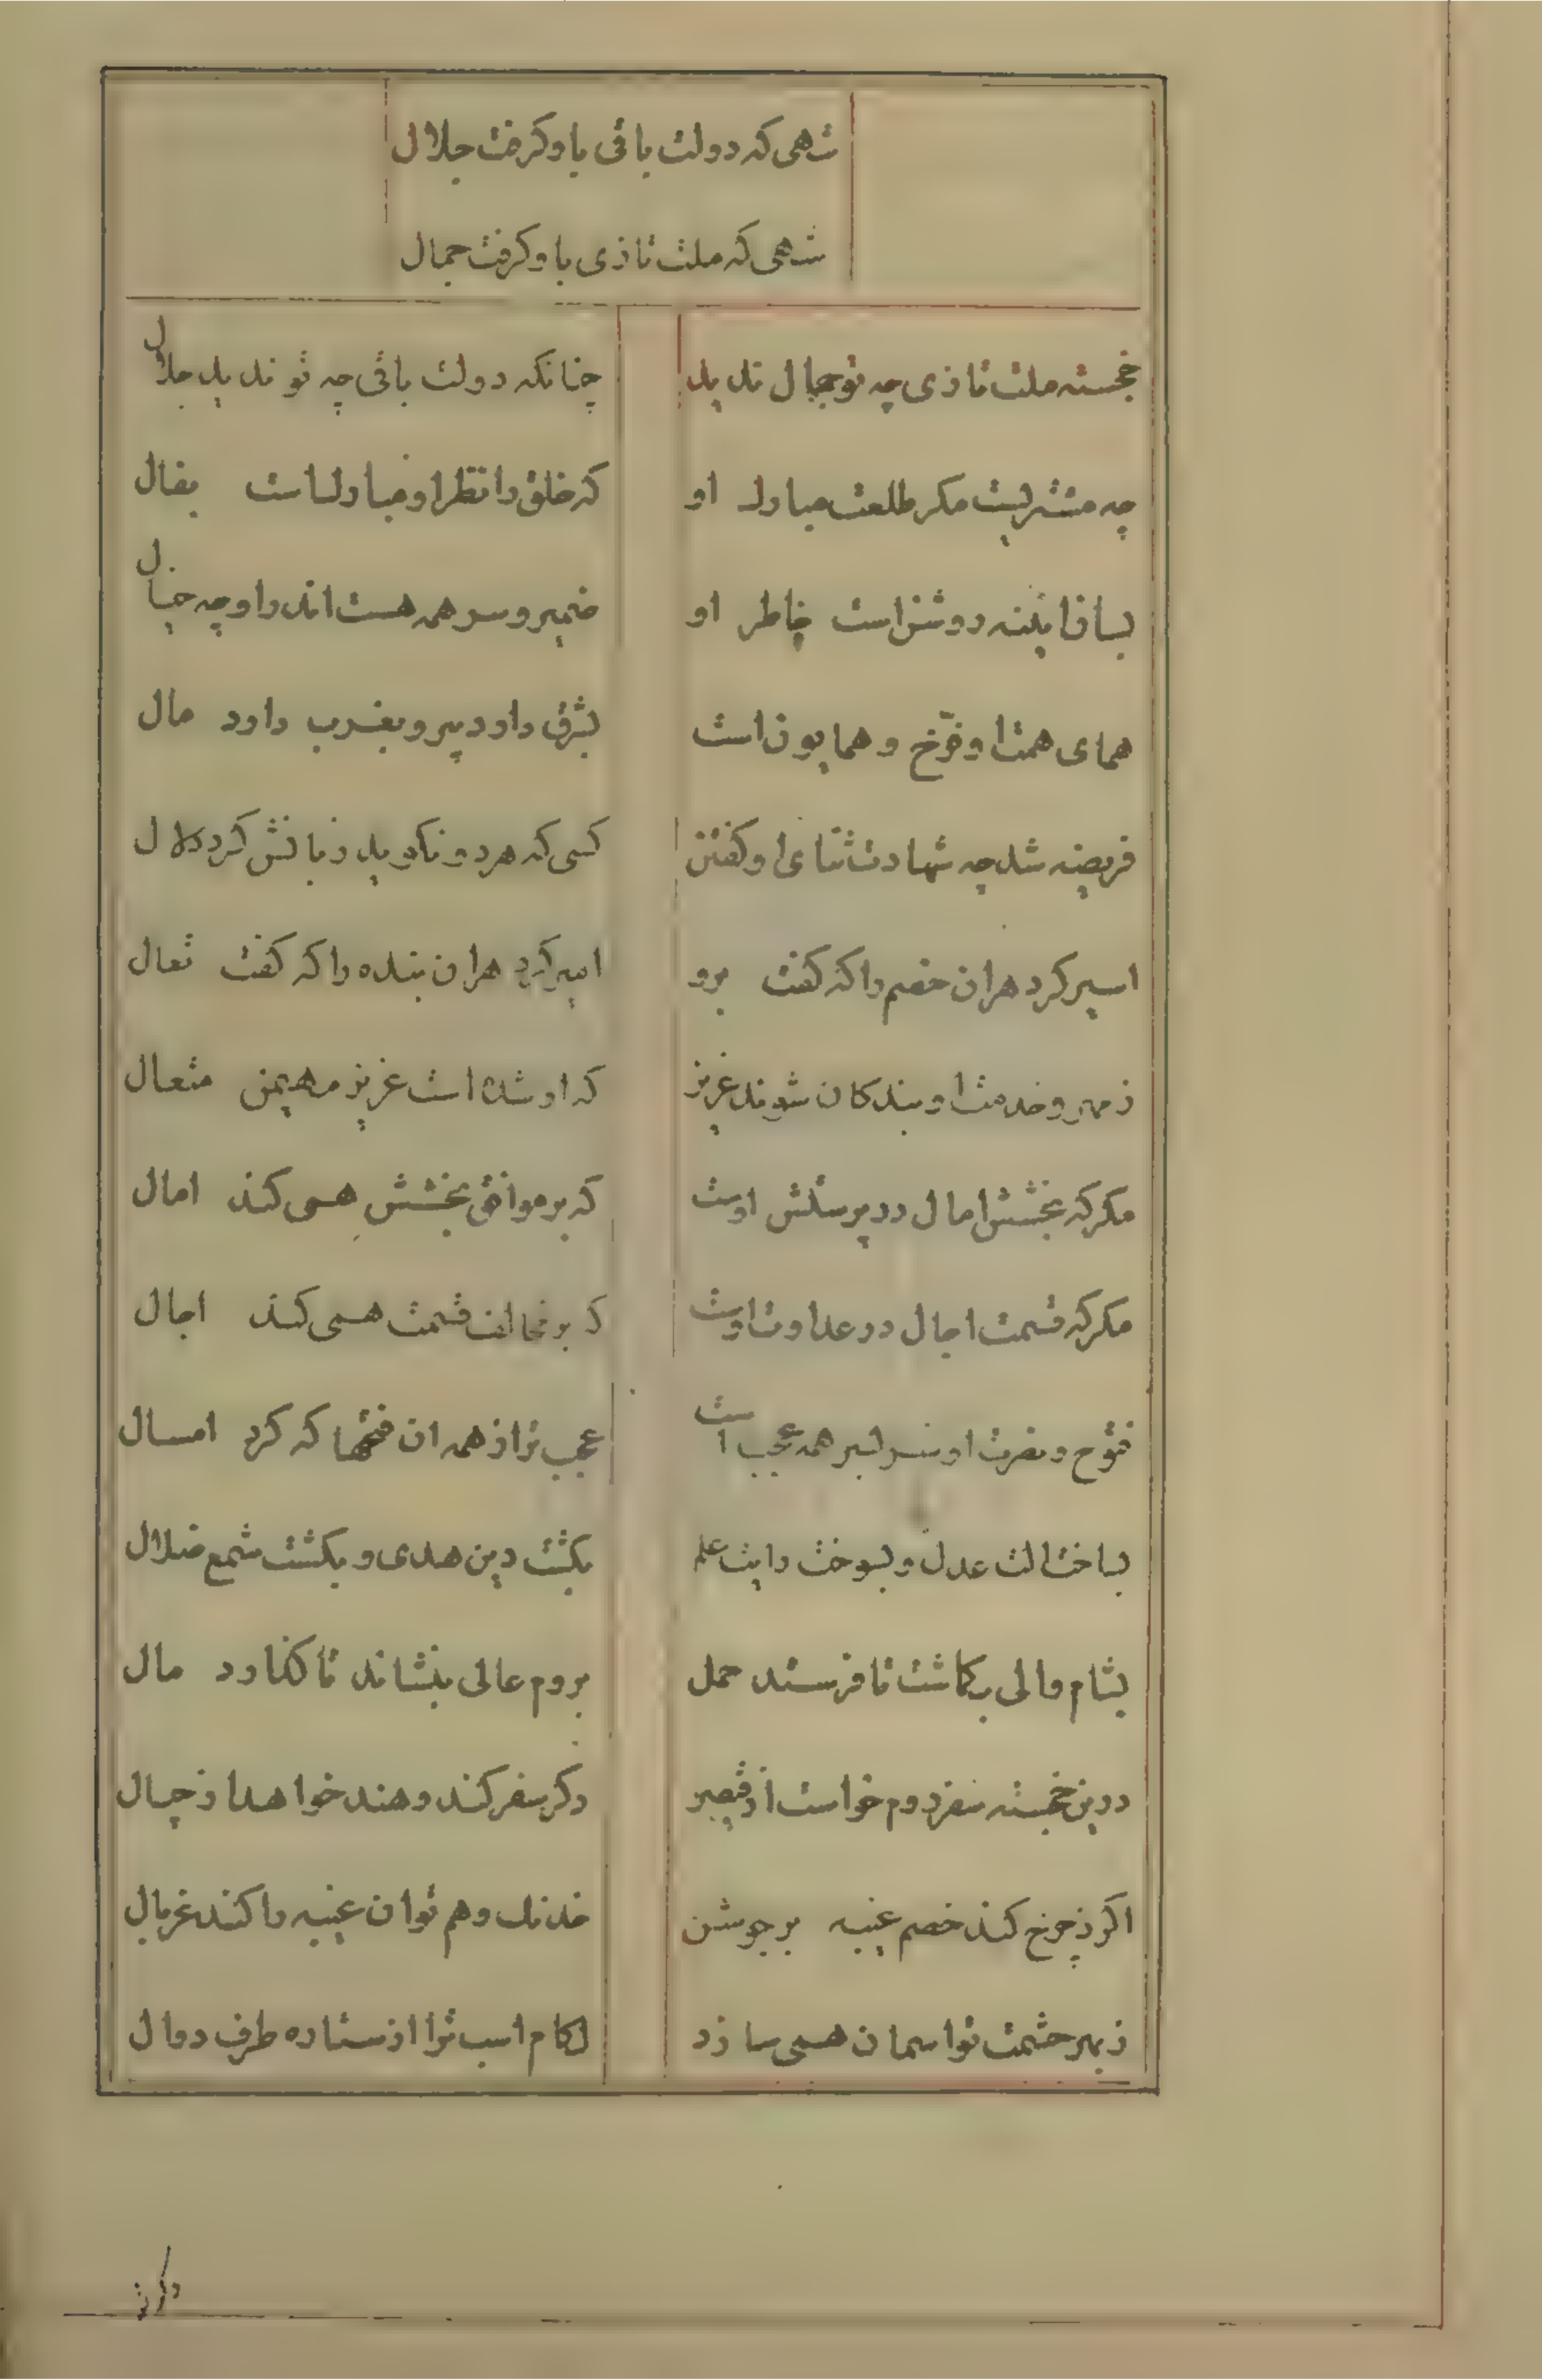 شهی که دولت باقی باو کرفت جلال
شهی که ملت تازی باو کرفت جمال
خجسته ملت تازی چه تو جمال ندید
چنانکه دولت باقی چه تو ندید جلال
چه مشتریست مکر طلعت مبارک او
که خلق را نظر او مبارک است بفال
بسان اینه روشن است خاطر او
ضمیر و سر همه هست اندر او چه خیال
همای همت او فرّخ و همایون است
بشرق دارد پر و بغرب دارد مال
فریضه شد چه شهادت ثنای او کفتن
کسی که هر دو نکوید زبانش کردد لال
اسیر کرد هر ان خصم را که کفت برو
امیر کرد هر ان بنده را که کفت تعال
ز مهر و خدمت او بندکان شوند عزیز
که او شده است عزیز مهیمن متعال
مکر که بخشش امال در پرستش اوست
که بر موافق بخشش همی کند امال
مکر که قسمت اجال در عداوت اوست
که بر مخالف قسمت همی کند اجال
فتوح و نصرت او سر بسر همه عجب است
عجب تر از همه ان فتحها که کرد امسال
بساخت الت عدل و بسوخت رایت علم
بکشت دین هدی و بکشت شمع ضلال
بشام والی بکماشت تا فرستد حمل
بروم عالی بنشاند تا کذارد مال
درین خجسته سفر روم خواست از قیصر
دکر سفر کند و هند خواهد از چیپال
اکر ز چرخ کند خصم غیبه بر جوشن
خدنک وهم تو ان غیبه را کند غربال
ز بهر حشمت تو اسمان همی سازد
لکام اسب ترا از ستاره طرف دوال